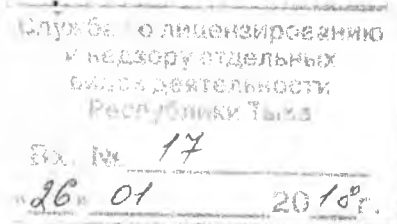 Служба по лицензированию
и надзору отдельных
видов деятельности
Республики Тыва
Вх. № 17
«26» 01 2018г.